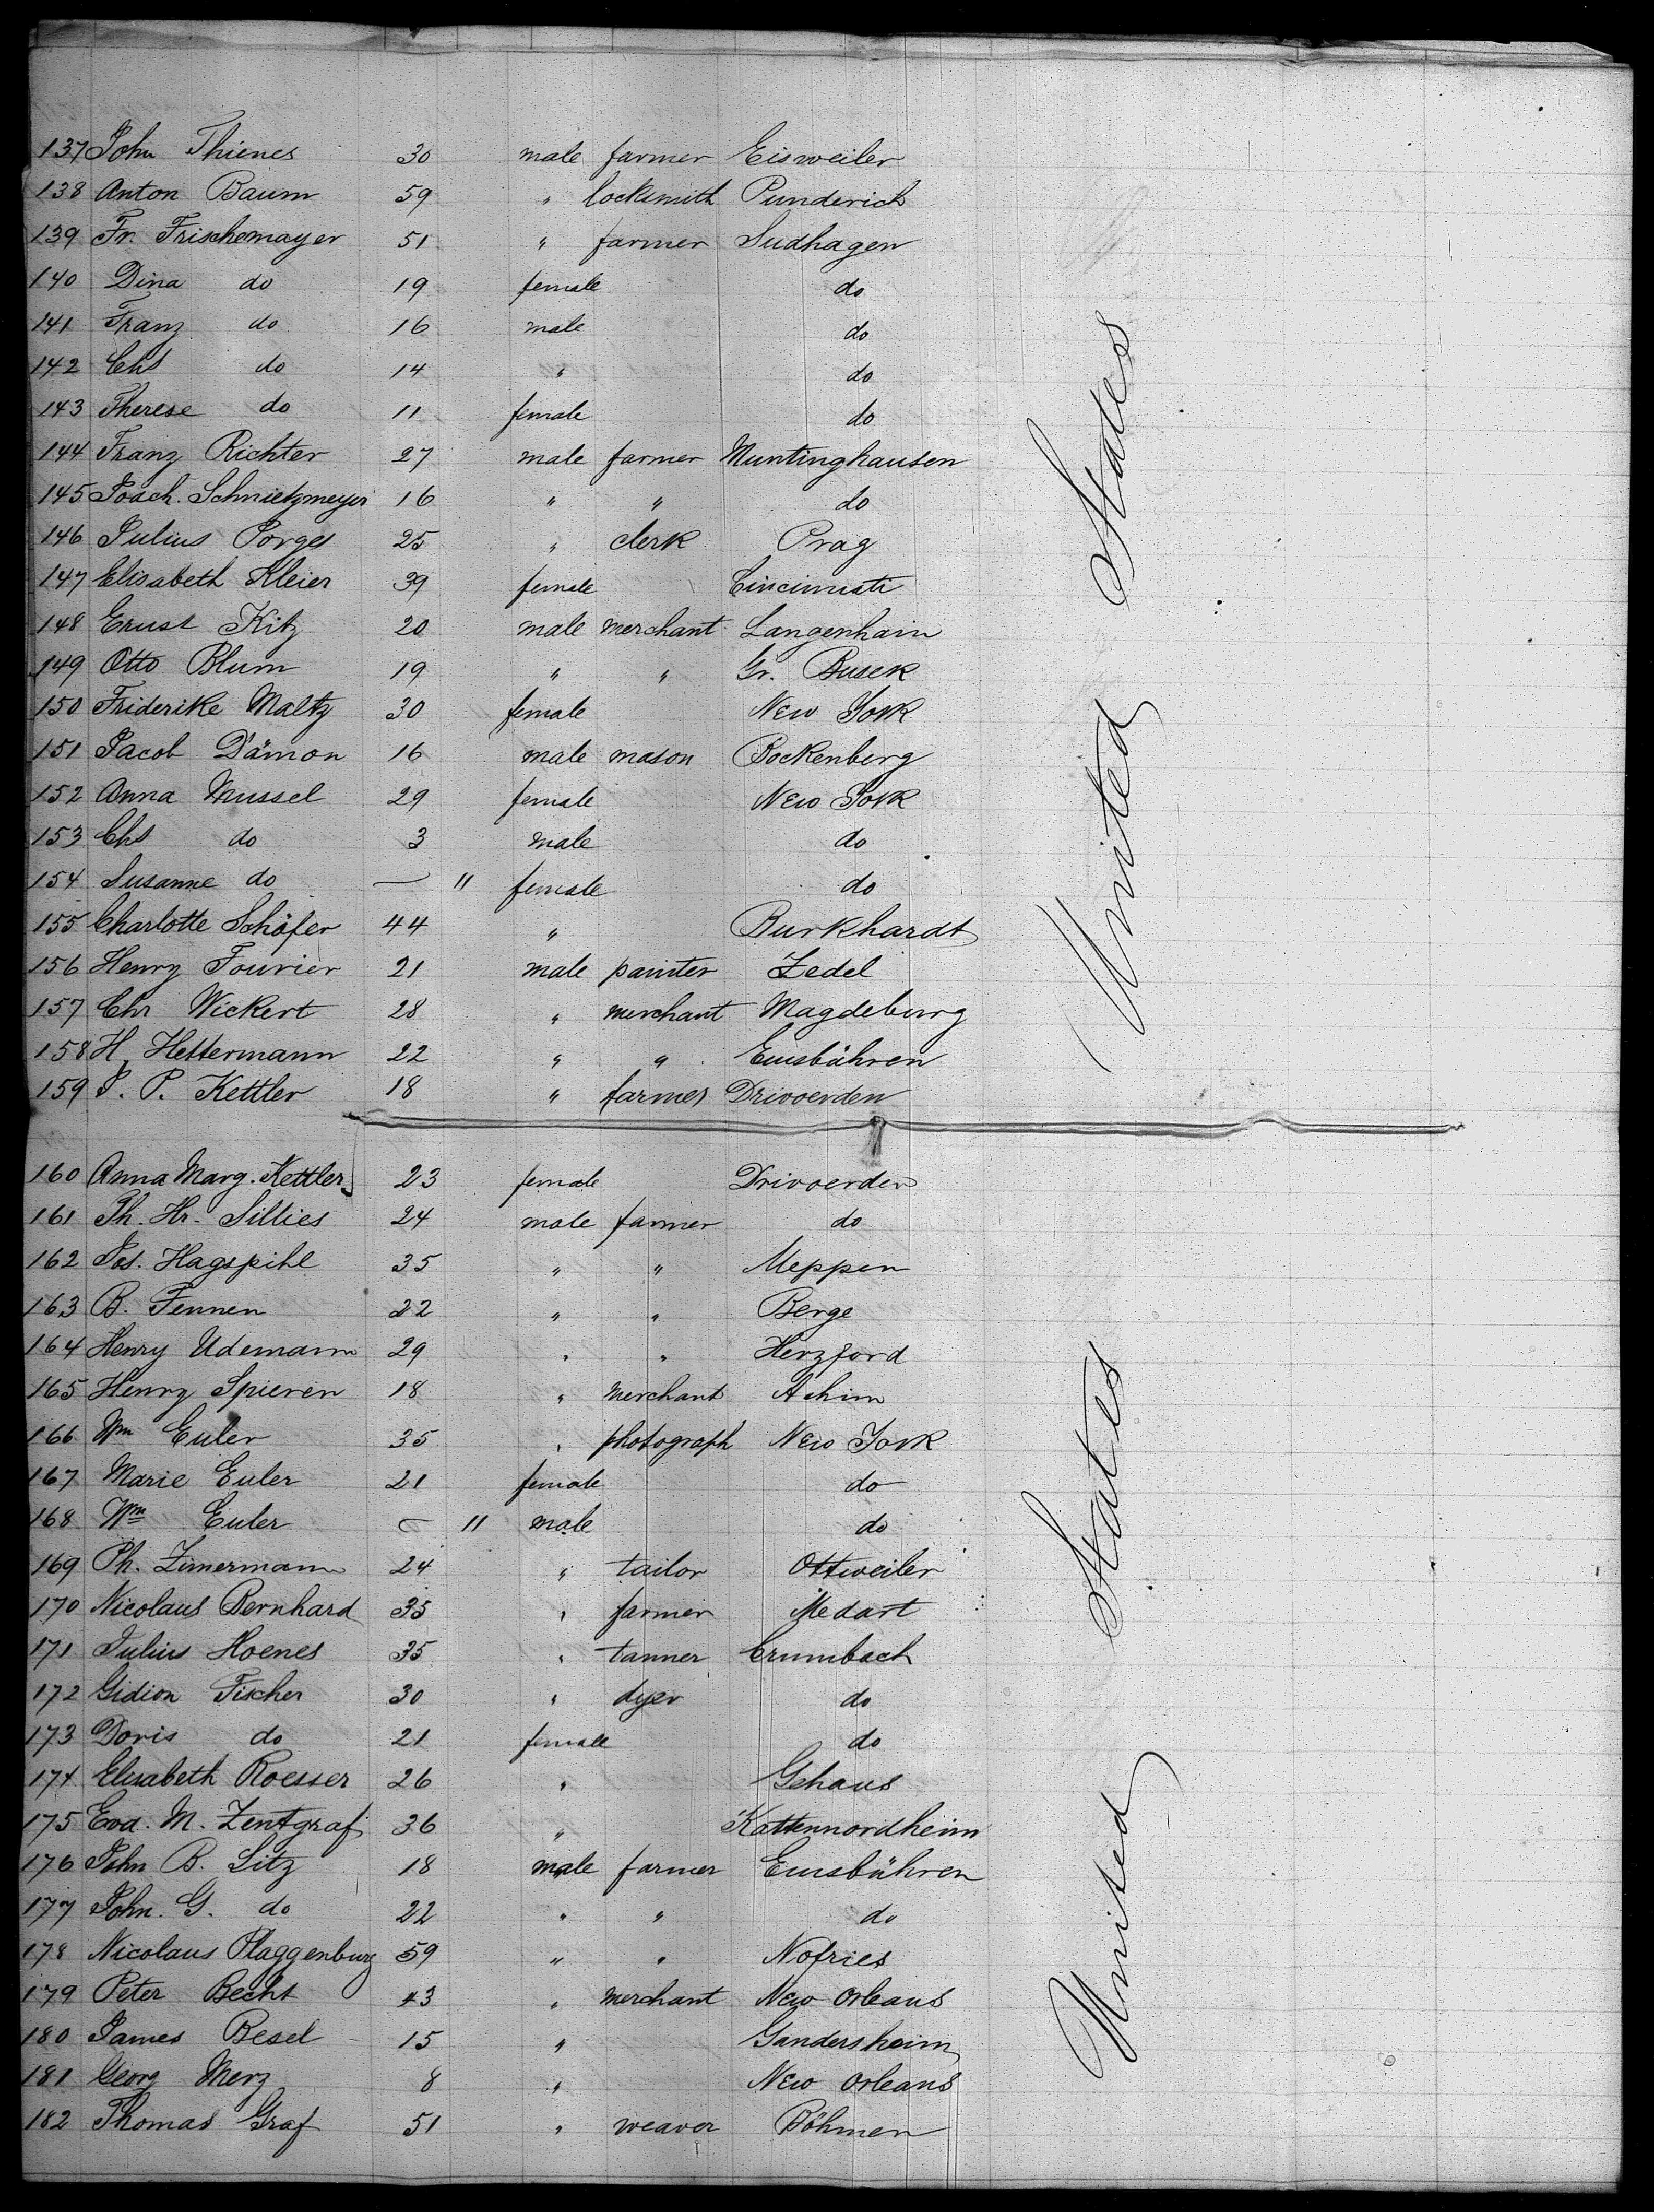 137 John Thienes 30 male farmer Eisweiler
138 Anton Baum 59 " locksmith Punderich
139 Fr. Frischemayer 51 " farmer Sudhagen
140 Dina do 19 female do
141 Franz do 16 male do
142 Chs do 14 " do
143 Therese do 11 female do
144 Franz Richter 27 male farmer Muntinghausen
145 Joach. Schnietzmeyer 16 " " do
146 Julius Porges 25 " clerk Prag
147 Elisabeth Kleier 39 female Cincinnati
148 Ernst Kitz 20 male merchant Langenhain
149 Otto Blum 19 " " Gr. Buseck
150 Friderike Maltz 30 female New York
151 Jacob Dämon 16 male mason Bockenberg
152 Anna Mussel 29 female New York
153 Chs do 3 male do
154 Susanne do — 11 female do
155 Charlotte Schäfer 44 " Burkhardt
156 Henry Fourier 21 male painter Zedel
157 Chr Wickert 28 " merchant Magdeburg
158 H. Hettermann 22 " " Emsbühren
159 J. P. Kettler 18 " farmer Drivoerden
United States
160 Anna Marg. Kettler 23 female Drivoerden
161 Ph. Hr. Sillies 24 male farmer do
162 Jos. Hagspihl 35 " " Meppen
163 B. Fennen 22 " " Berge
164 Henry Udemann 29 " " Herzford
165 Henry Spieren 18 " merchant Achim
166 Wm Euler 35 " photograph New York
167 Marie Euler 21 female do
168 Wm Euler — 11 male do
169 Ph. Zimermann 24 " tailor Ottweiler
170 Nicolaus Bernhard 35 " farmer Medart
171 Julius Hoenes 35 " tanner Crumbach
172 Gidion Fischer 30 " dyer do
173 Doris do 21 female do
174 Elisabeth Roesser 26 " Gehaus
175 Eva. M. Zentgraf 36 " Kattennordheim
176 John B. Litz 18 male farmer Emsbühren
177 John. G. do 22 " " do
178 Nicolaus Plaggenburg 59 " " Nofries
179 Peter Becht 43 " merchant New Orleans
180 James Besel 15 " Gandersheim
181 Georg Merz 8 " New Orleans
182 Thomas Graf 51 " weaver Böhmen
United States